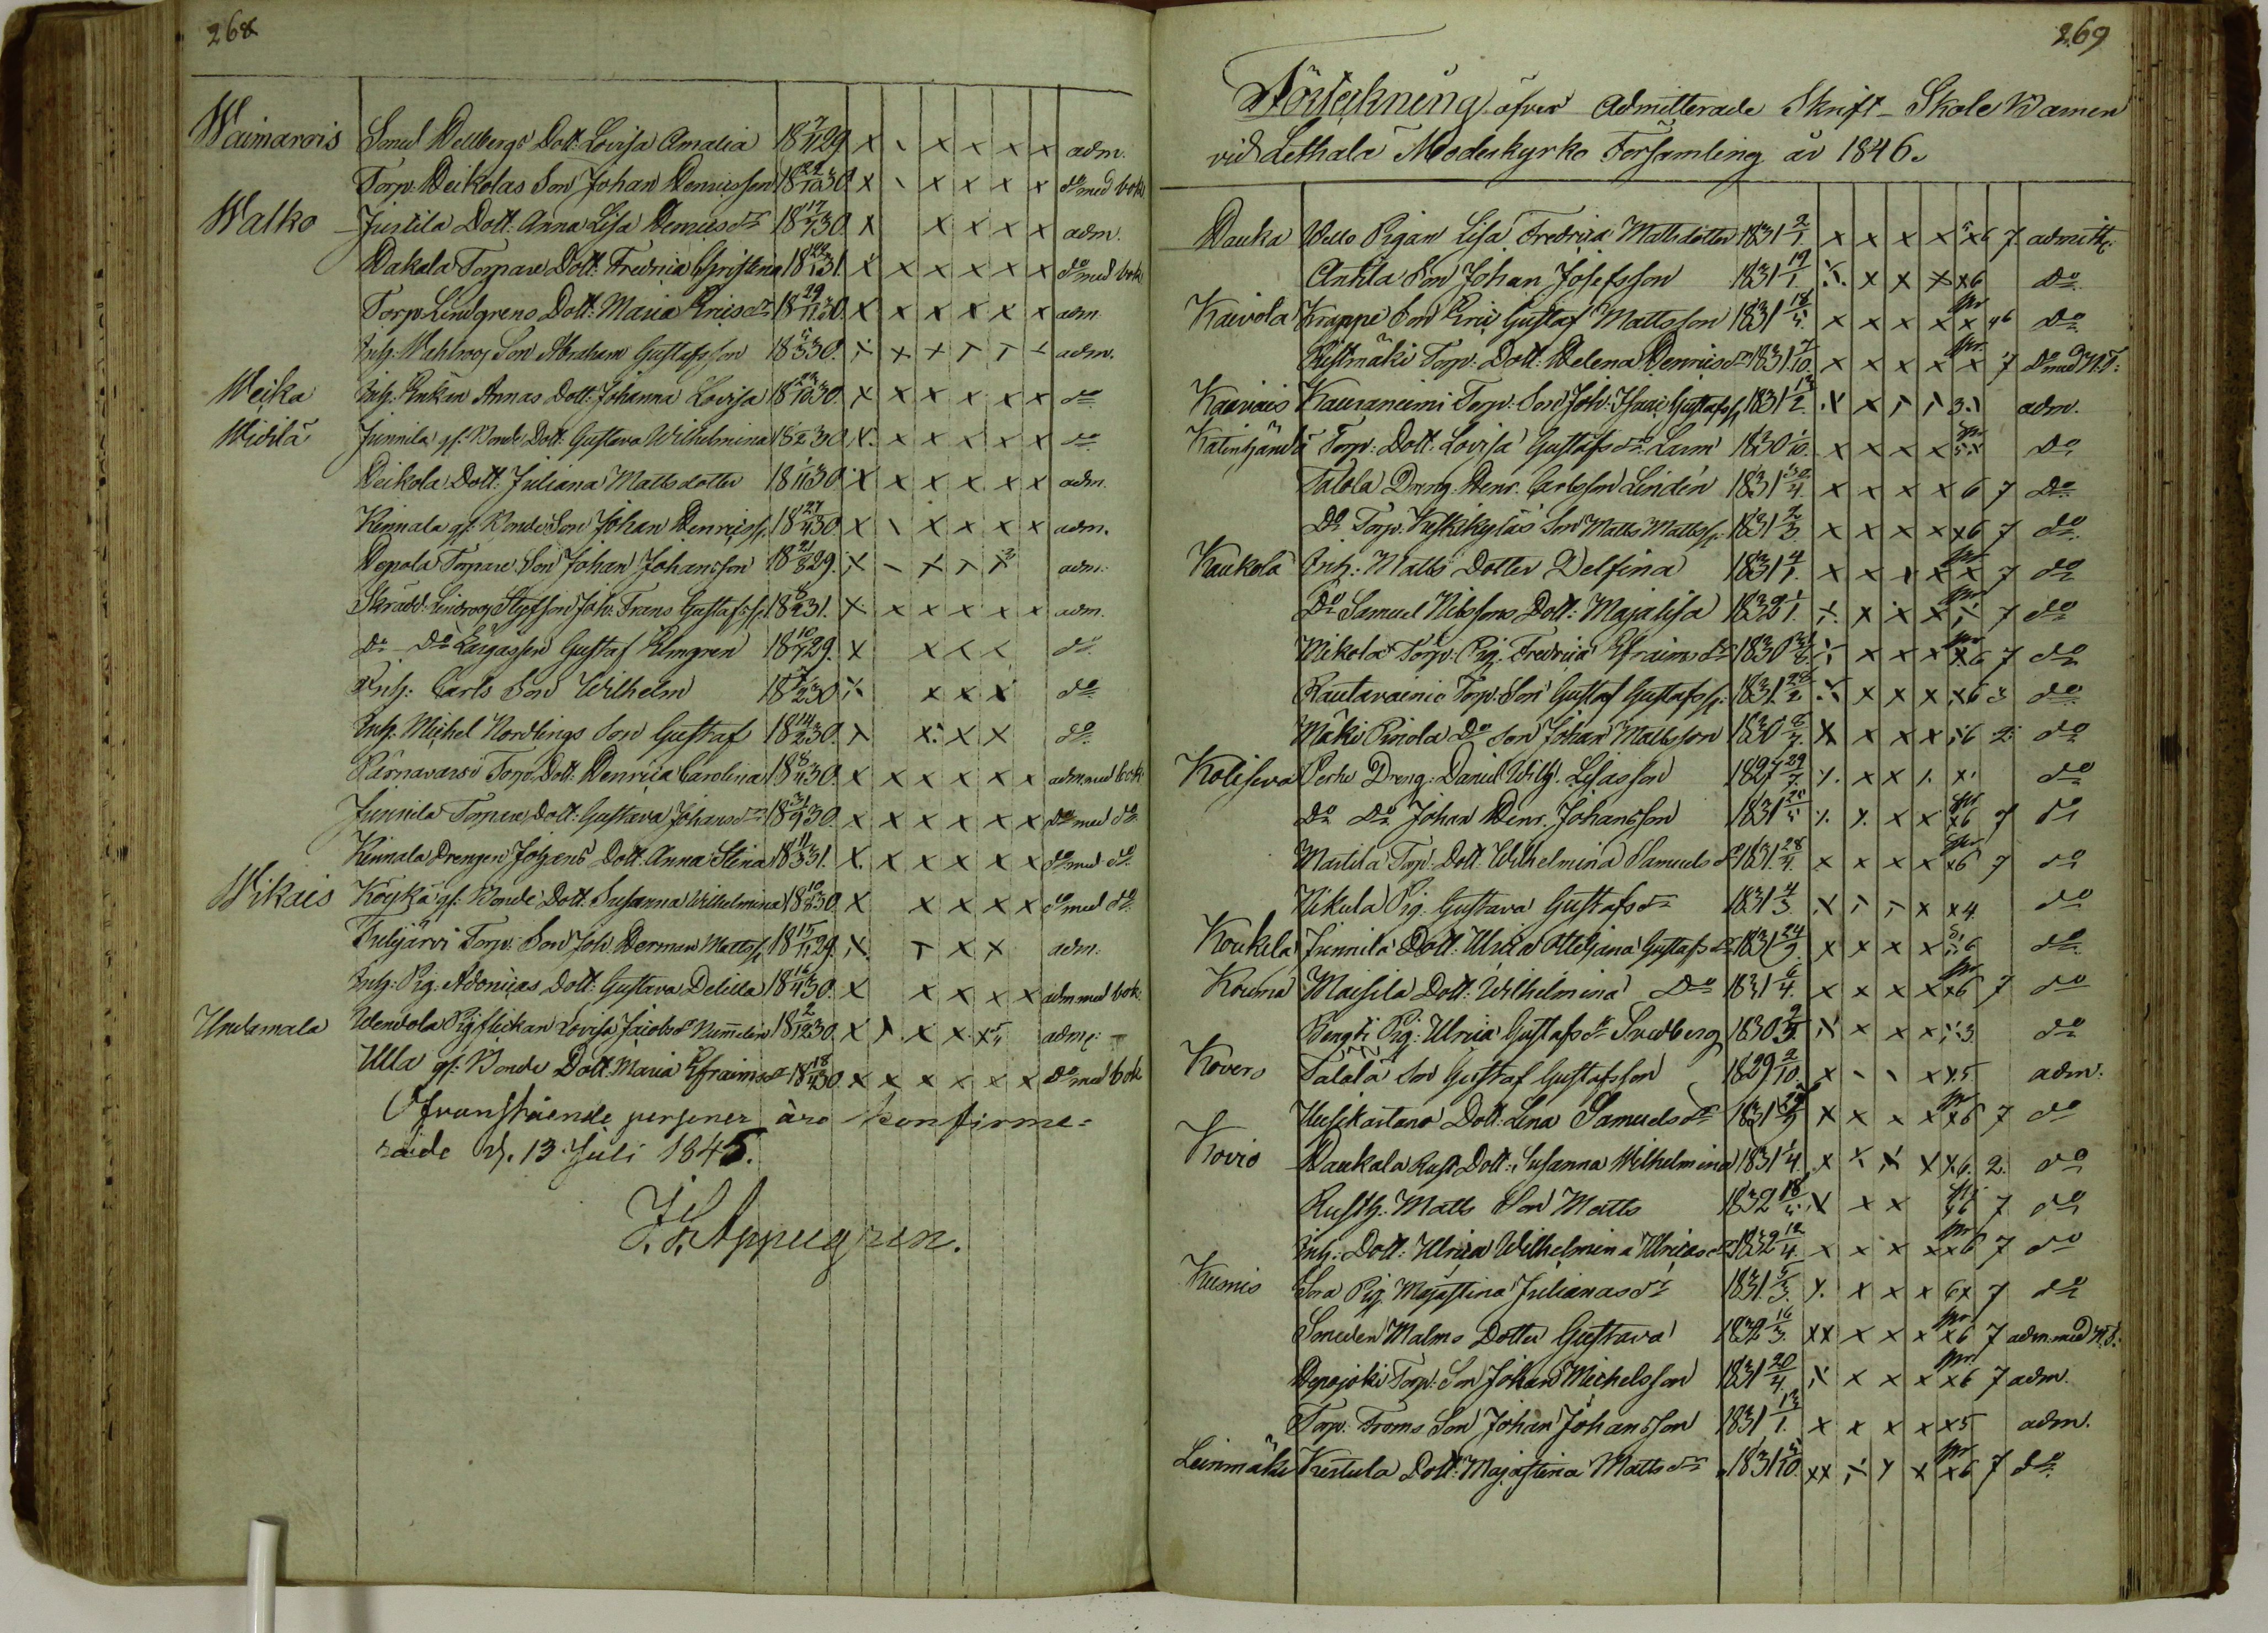 268
Waimarois Smed Hellbergs Dott. Lovisa Amalia 18 29 x x x x x x adm.
Torp. Heikolas Son Johan Henricsson 18 22/10 30 x x x x x x do med bok
Walko Juntila Dott. Anna Lisa Henricsdr 18 17/7 30 x x x x x adm.
Hakala Torpare Dott. Fredrica Christina 18 31. x x x x x x do med bok
Torp Lindgrens Dott. Maria Ericsdr 18 29/11 30 x x x x x x adm
Inh. Wahlroos Son Abraham Gustafsson 18 30. x x x x x x adm.
Weika Inh. Enkan Annas Dott. Johanna Lovisa 18 30. x x x x x x do
Widilä Junnila gf. Bonde Dott. Gustava Wilhelmina 18 30 x x x x x x do
Heikola Dott. Juliana Mattsdotter 18 30 x x x x x x adm.
Kinnala gf. Bonde Son Johan Henricss. 18 27/4 30. x x x x x x adm.
Hepola Torpare Son Johan Johansson 18 21/8 29. x x x x adm.
Skrädd. Lindroos Styfson Joh. Frans Gustafss. 18 31. x x x x x x adm.
Do Do Lärgossen Gustaf Elmgren 18 10/7 29. x x x x do
Inh: Carls Son Wilhelm 18 30 x x x x do
Inh. Michel Nordlings Son Gustaf 18 14/2 30. x x x x do
Pärnavarsi Torp. Dott. Henrica Carolina 18 8/4 30 x x x x x x adm med bok
Junnila Torpare Dott. Gustava Johansdr 18 31/9 30. x x x x x x do med do
Kinnala Drengen Johans Dott. Anna Stina 18 11/3 31. x x x x x x do med do
Wikais Köykä gf. Bonde Dott. Susanna Wilhelmina 18 10/8 30 x x x x x do med do
Fuljärvi Torp. Son Joh. Herman Mattss. 18 15/11 29. x x x x adm.
Inh: Pig. Adonicas Dott: Gustava Delilla 18 16/4 30. x x x x x adm med bok.
Untamala Uendola Pigflickan Lovisa Jacobsdr Nummelin 18 2/12 30. x x x x x adm:
Ulla gf. Bonde Dott. Maria Efraimsdr 18 18/4 30. x x x x x x do med bok
Ofvanstående personer äro konfirme-
rade d. 13 Juli 1845.
Appelgren.
269
Förteckning öfver Admitterade Skrift-Skole Barnen
vid Lethala Moderkyrko Församling år 1846.
Hauka Wello Pigan Lisa Fredrica Mattsdotter 1831 2/1. x x x x x6 7 admitt:
Anttila Son Johan Josefsson 1831 19/1. x x x x x6 do
Kaivola Krappe Son Eric Gustaf Mattsson 1831 18/5. x x x x x 6 do
Ristimäki Torp. Dott: Helena Henricsdr 1831 7/10. x x x x x 7 do med N.T:
Kaaviais Kauraniemi Torp. Son Joh. Isaac Gustafss. 1831 13/2. x x x x 3. adm.
Katinhändä Torp. Dott. Lovisa Gustafsdr Larm 1830 x x x x do
Talola Dreng Henr. Carlsson Linden 1831 30/4. x x x x 6 7 do
Do Torp. Keskikyläs Son Matts Mattss. 1831 2/3. x x x x x6 7 do
Kaukola Inh: Matts Dotter Delfina 1831 4/1. x x x x x 7 do
Do Samuel Nilssons Dott: Majalisa 1832 1/1. x x x x 7 do
Nikola Torp. Pig. Fredrica Efraimsdr 1830 x x x x x6 7 do
Rautavainio Torp. Son Gustaf Gustafss. 1831. 28/2 x x x x x6 3 do
Mäki Piriola Do Son Johan Mattsson 1830 8/7. x x x x 6 2 do
Kolisiva Perho Dreng: David Wilh. Lisasson 1827 29/7. x x x x x do
Do Do Johan Henr. Johansson 1831 25/5 x x x x x6 7 do
Martila Torp. Dott. Wilhelmina Samuelsdr 1831. 28/4. x x x x x6 7 do
Kikula Pig. Gustava Gustafsdr 1831 4/3. x x x x x4 do
Koukela Junnila Dott. Ulrica Ottiljana Gustafsdr 1831 24/9. x x x x 6 do
Kouma Maisila Dott: Wilhelmina Do 1831 6/4. x x x x x6 7 do
Bengti Pig. Ulrica Gustafsdr Svedberg 1830 x x x x 3 do
Kovero Talola Son Gustaf Gustafsson 1829 2/10. x x x x x5 adm.
Uusikartano Dott: Lena Samuelsdr 1831 x x x x x6 7 do
Kovio Haukala Rust. Dott: Susanna Wilhelmina 1831 1/4. x x x x x6. 2. do
Rusth. Matts Son Matts 1832 18/5. x x x 6 7 do
Inh: Dott: Ulrica Wilhelmina Ulricasdr 1832 12/4. x x x x x6 7 do
Kurnis Sora Pig. Majastina Julianasdr 1831. 5/3. x x x x 6x 7 do
Smeden Malms Dotter Gustava 1832 16/3. xx x x x x6 7 adm. med N.T:
Hepojoki Torp. Son Johan Michelsson 1831 20/4. x x x x x6 7 adm.
Torp. Froms Son Johan Johansson 1831 13/1. x x x x x5 adm.
Leinmäki Krestula Dott: Majastina Mattsdr 1831 5/10. xx x x x x6 7 do